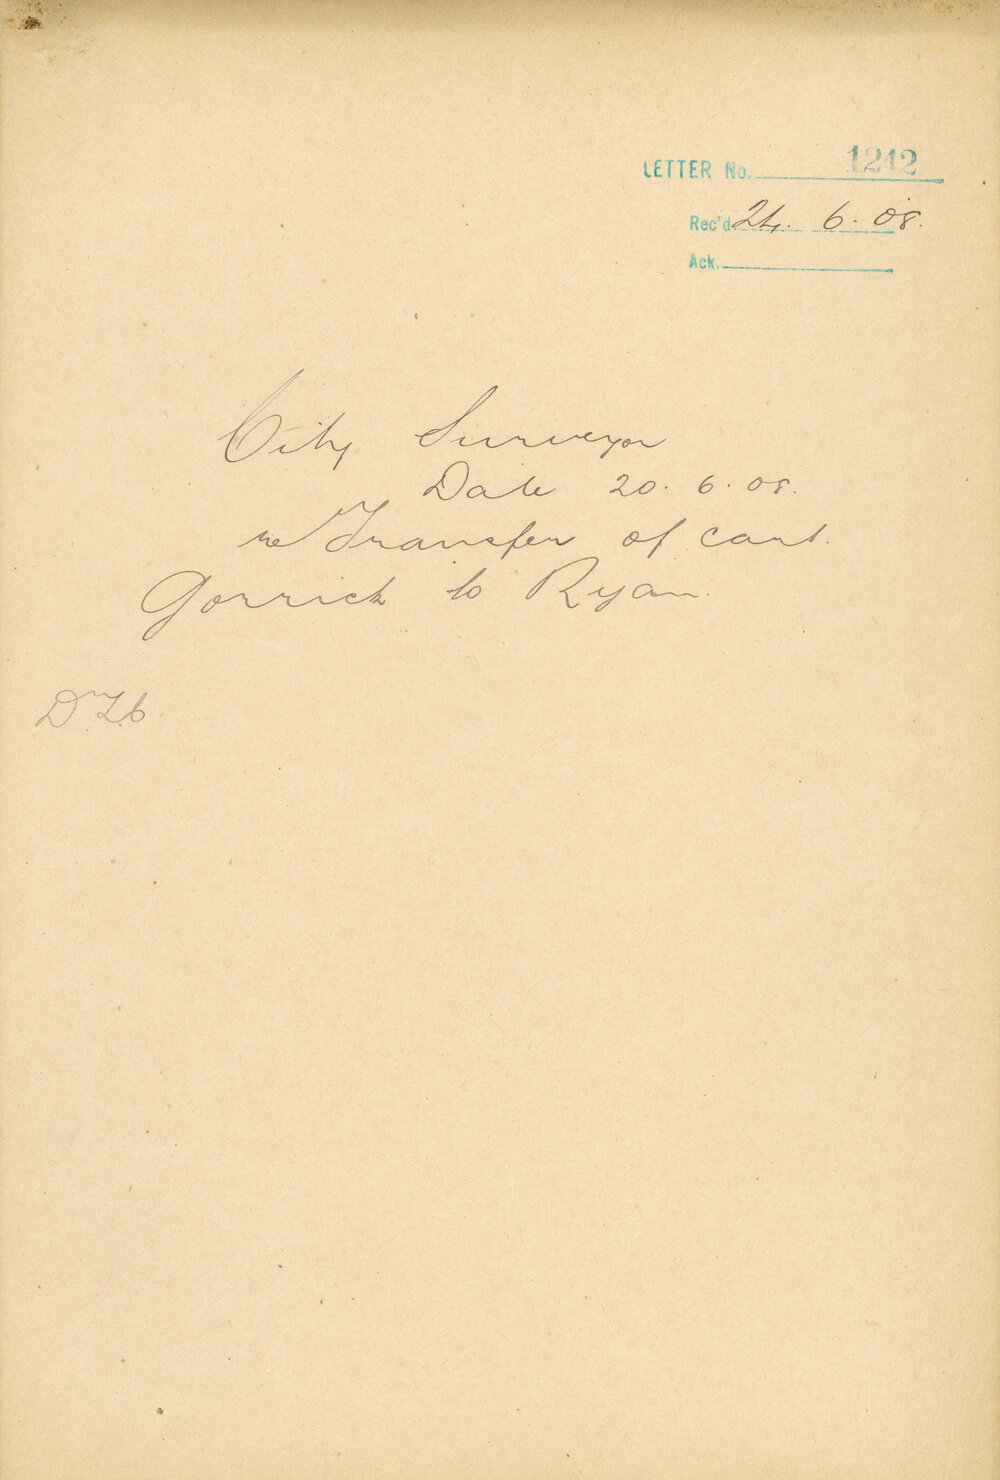 LETTER No. 1242
Rec'd 24. 6. 08.
Ack.
City Surveyor
Date 20. 6. 08.
re Transfer of cart.
Gorrick to Ryan.